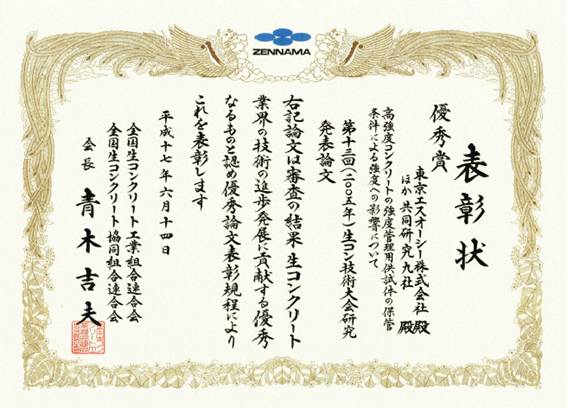 ZENNAMA
表彰状
優秀賞
東京エスオーシー株式会社 殿
ほか共同研究九社 殿
高強度コンクリートの強度管理用供試体の保管
条件による強度への影響について
第十三回(二〇〇五年)生コン技術大会研究
発表論文
右記論文は審査の結果生コンクリート
業界の技術の進歩発展に貢献する優秀
なるものと認め優秀論文表彰規程により
これを表彰します
平成十七年六月十四日
全国生コンクリート工業組合連合会
全国生コンクリート協同組合連合会
会長 青木吉夫